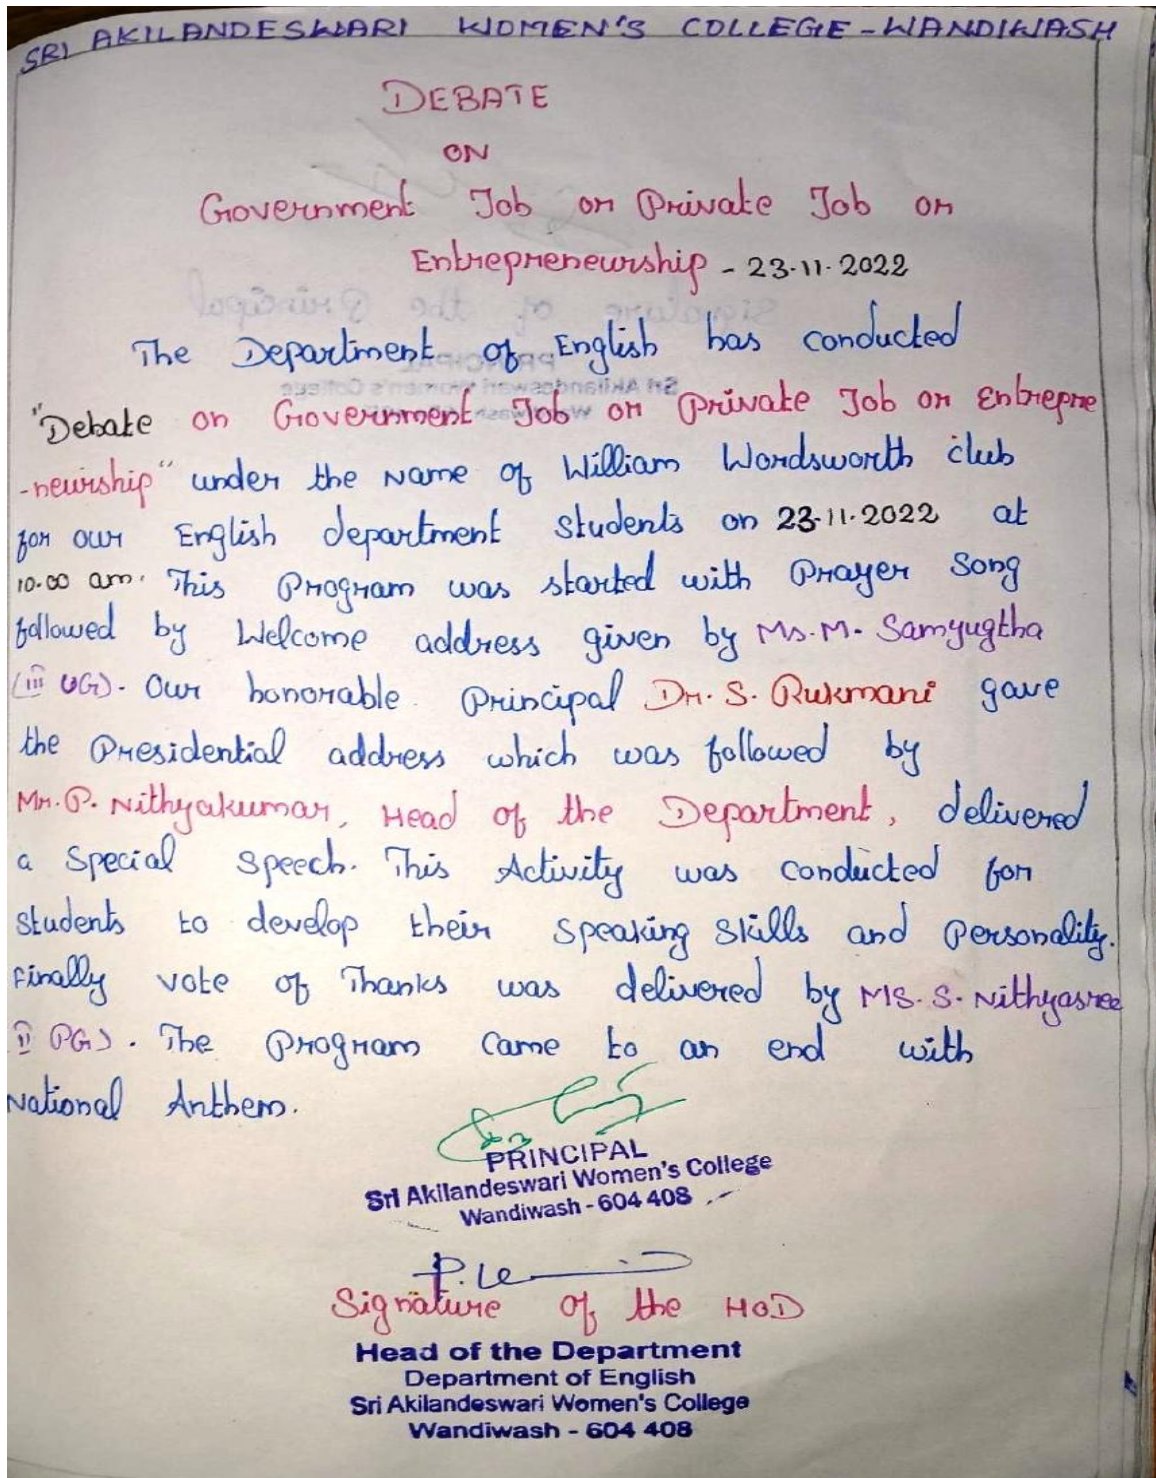 SRI AKILANDESWARI WOMEN'S COLLEGE - WANDIWASH
DEBATE
ON
Government Job or Private Job or
Entrepreneurship - 23.11.2022
The Department of English has conducted
"Debate on Government Job or Private Job or Entrepre
-neurship" under the Name of William Wordsworth club
for our English department Students on 23.11.2022 at
10.00 am. This Program was started with Prayer Song
followed by Welcome address given by Ms. M. Samyugtha
(III UG). Our honorable Principal Dr. S. Rukmani gave
the Presidential address which was followed by
Mr. P. Nithyakumar, Head of the Department, delivered
a Special Speech. This Activity was conducted for
Students to develop their Speaking Skills and Personality.
Finally vote of Thanks was delivered by MS. S. Nithyasree
II PG). The Program Came to an end with
National Anthem.
PRINCIPAL
Sri Akilandeswari Women's College
Wandiwash - 604 408
Signature of the HOD
Head of the Department
Department of English
Sri Akilandeswari Women's College
Wandiwash - 604 408